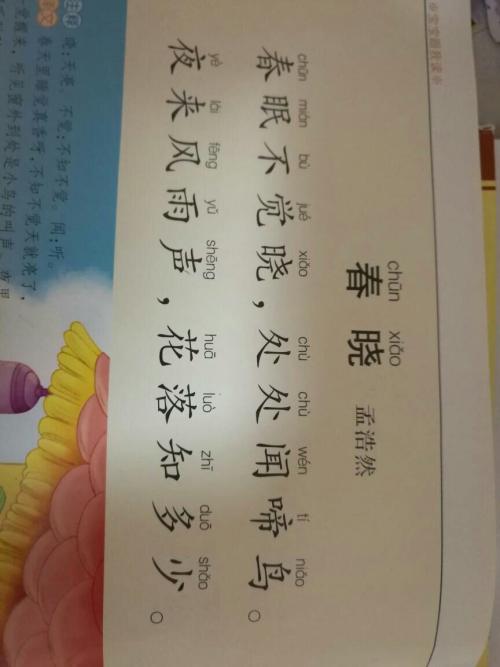 宝宝跟我读
chūn xiǎo
春晓
孟浩然
chūn mián bù jué xiǎo chù chù wén tí niǎo
春眠不觉晓，处处闻啼鸟。
yè lái fēng yǔ shēng huā luò zhī duō shǎo
夜来风雨声，花落知多少。
注释 晓:天亮。 不觉:不知不觉。 闻:听。
译文 春天里睡觉真香呀,不知不觉天就亮了,
一觉醒来,听见窗外到处是小鸟的叫声。夜里